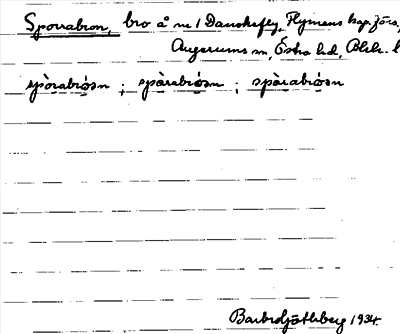 Sporrabron, bro å nr 1 Danskefly, Flymens kap.förs.,
Augerums sn, Östra hd, Blek. l
spòrabró̱sn ; spàrabró̱sn ; spàrabró̱sn
1934.